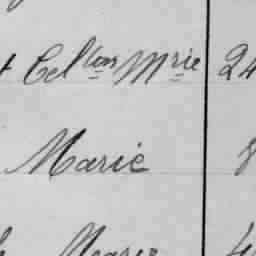 Cel^ton M^rie 24
Marie 8
Marie 4